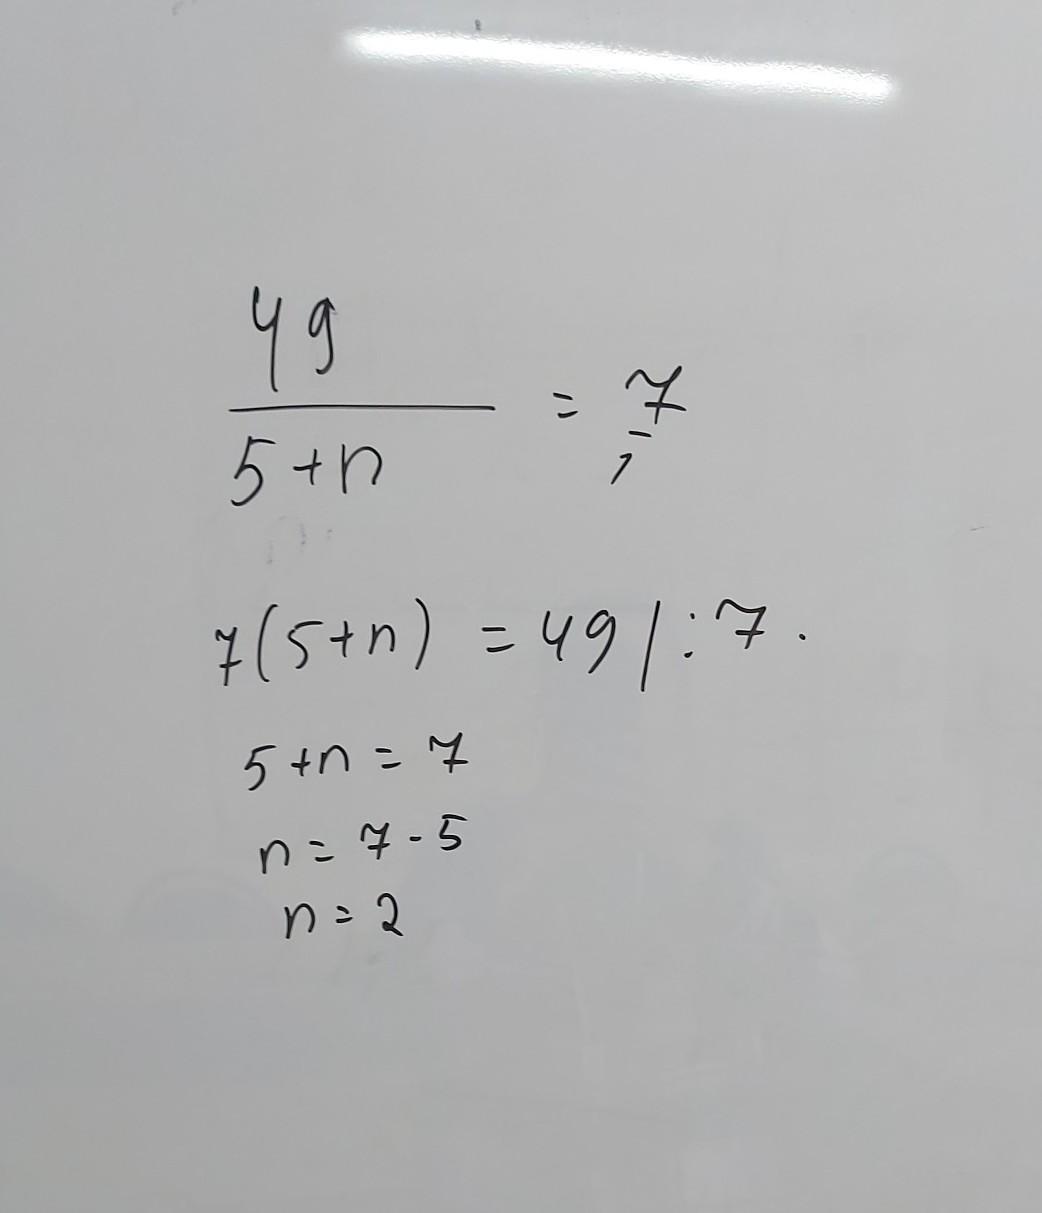 49
5+n
= 7
1
7(5+n) = 49 | : 7.
5+n = 7
n = 7 - 5
n = 2